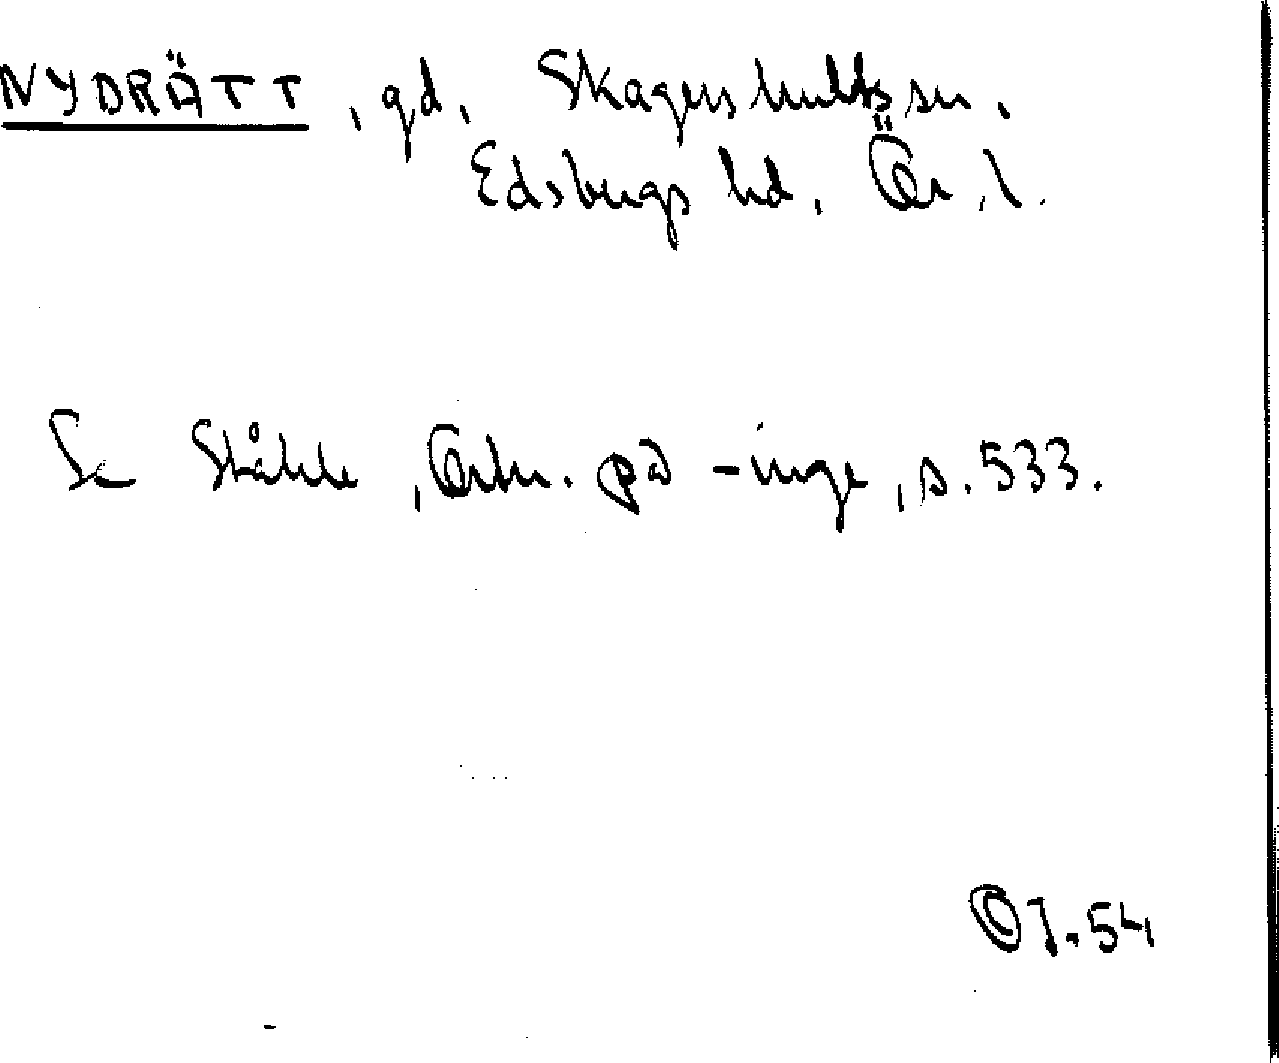 NYDRÄTT, gd, Skagershults sn,
Edsbergs hd, Ör. l.
Se Ståhle, Ortn. på -inge, s. 533.
OJ. 54